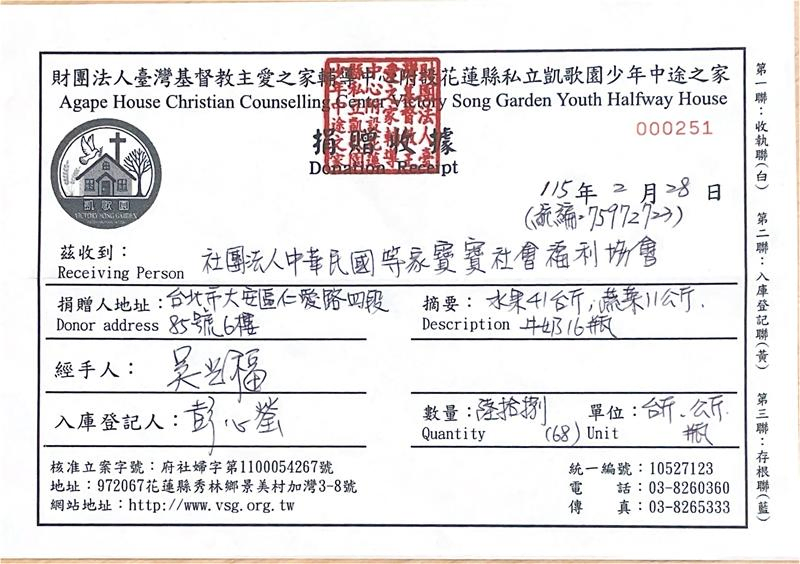 財團法人臺灣基督教主愛之家輔導中心附設花蓮縣私立凱歌園少年中途之家
Agape House Christian Counselling Center Victory Song Garden Youth Halfway House
捐贈收據
Donation Receipt
000251
凱歌園
VICTORY SONG GARDEN
115年2月28日
(統編:75972723)
茲收到:
Receiving Person
社團法人中華民國等家寶寶社會福利協會
捐贈人地址:台北市大安區仁愛路四段
Donor address 85號6樓
摘要: 水果41台斤,蔬菜11公斤.
Description 牛奶16瓶
經手人:
入庫登記人:彭心瑩
數量:陸拾捌 單位:台斤、公斤.
Quantity (68) Unit 瓶
核准立案字號:府社婦字第1100054267號
地址:972067花蓮縣秀林鄉景美村加灣3-8號
網站地址:http://www.vsg.org.tw
統一編號:10527123
電 話:03-8260360
傳 真:03-8265333
第一聯:收執聯(白) 第二聯:入庫登記聯(黃) 第三聯:存根聯(藍)